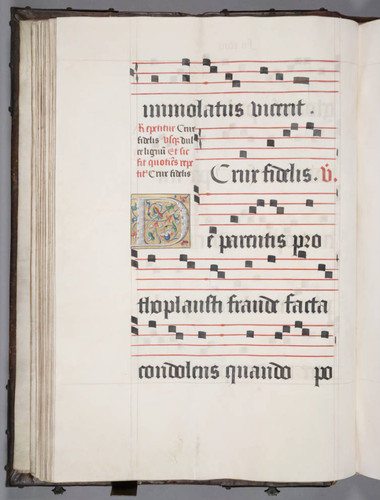 immolatus vicerit.
Repetitur Crux
fidelis usq; dul
ce lignū Et sic
fit quotiēs repe
titᵘʳ Crux fidelis
Crux fidelis. v̄.
De parentis pro
thoplausti fraude facta
condolens quando po